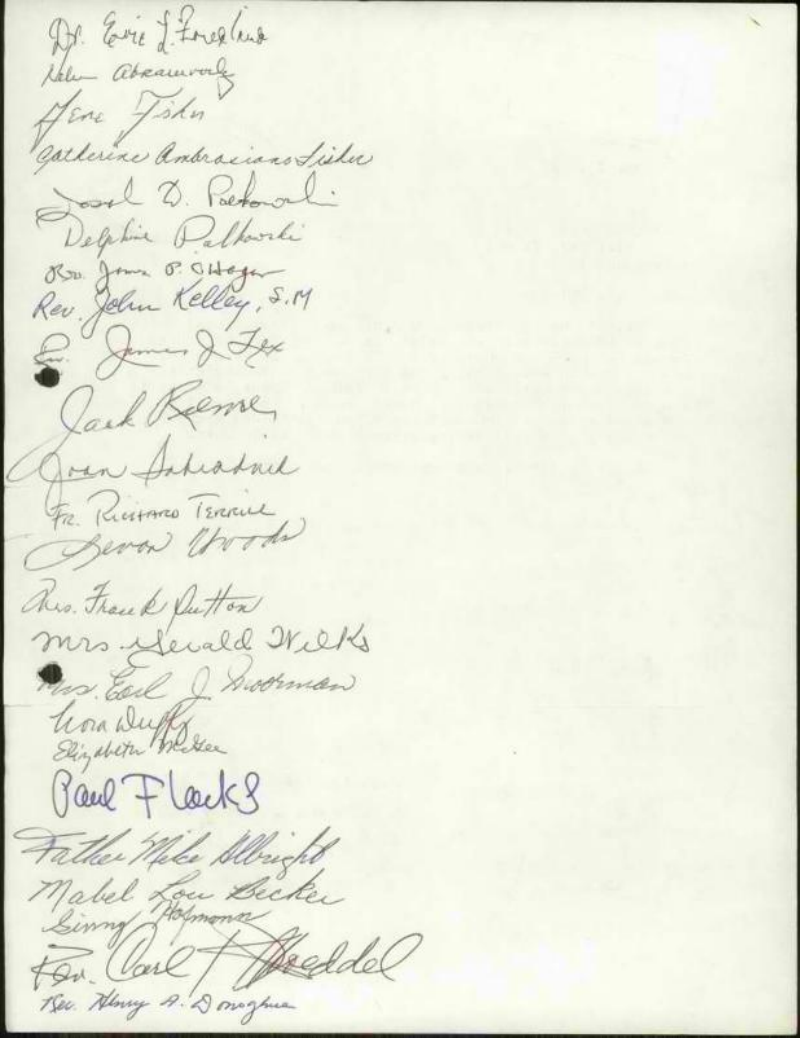 Dr. Eric L. Friedland
Helen Abramovitz
Gene Fisher
Catherine Ambrosiano Fisher
Josef D.
Delphine Palkowski
Rev. James P. O'Hagan
Rev. John Kelley, S.M
James J
Jack
Joan
Fr. Richard Terrill
Devon Woods
Mrs. Frank Dutton
Mrs. Gerald Wilks
Mrs. Earl J. Moorman
Nora Duffy
Elizabeth McGee
Paul Flacks
Father Mike Albright
Mabel Lou Becker
Ginny Hofmann
Rev. Carl
Rev. Henry A. Donoghue